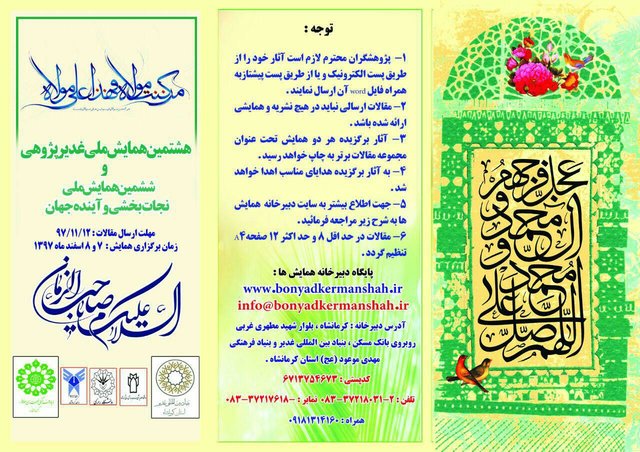 توجه :
۱- پژوهشگران محترم لازم است آثار خود را از
طریق پست الکترونیک و یا از طریق پست پیشتازبه
همراه فایل word آن ارسال نمایند .
۲- مقالات ارسالی نباید در هیچ نشریه و همایشی
ارائه شده باشد .
۳- آثار برگزیده هر دو همایش تحت عنوان
مجموعه مقالات برتر به چاپ خواهد رسید .
۴- به آثار برگزیده هدایای مناسب اهدا خواهد
شد .
۵- جهت اطلاع بیشتر به سایت دبیرخانه همایش
ها به شرح زیر مراجعه فرمائید .
۶- مقالات در حد اقل ۸ و حد اکثر ۱۲ صفحه A۴
تنظیم گردد .
پایگاه دبیرخانه همایش ها :
www.bonyadkermanshah.ir
info@bonyadkermanshah.ir
آدرس دبیرخانه : کرمانشاه ، بلوار شهید مطهری غربی
روبروی بانک مسکن ، بنیاد بین المللی غدیر و بنیاد فرهنگی
مهدی موعود (عج) استان کرمانشاه .
کدپستی : ۶۷۱۳۷۵۴۶۷۳
تلفن : ۲-۳۷۲۱۸۰۳۱-۰۸۳ نمابر : ۳۷۲۱۷۶۱۸-۰۸۳
همراه : ۰۹۱۸۱۳۱۴۱۶۰
من کنت مولاه فهذا علی مولاه
هشتمین همایش ملی غدیر پژوهی
و
ششمین همایش ملی
نجات بخشی و آینده جهان
مهلت ارسال مقالات : ۹۷/۱۱/۱۲
زمان برگزاری همایش : ۷ و ۸ اسفند ماه ۱۳۹۷
السلام علیک یا صاحب الزمان
اللهم صل علی محمد و آل محمد و عجل فرجهم